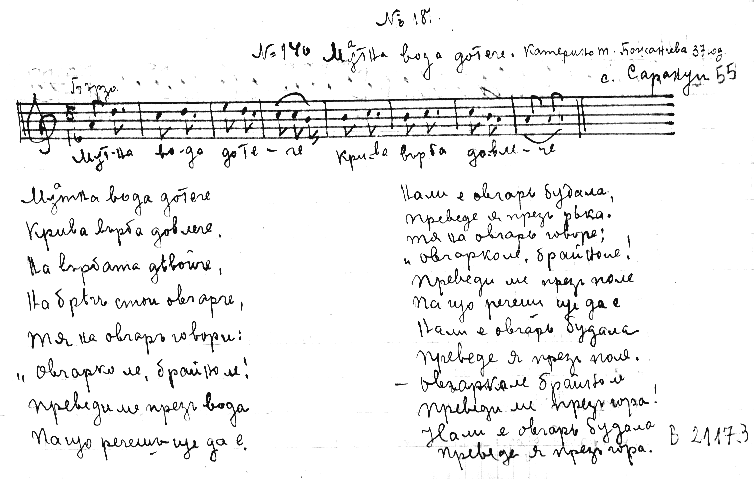 № 18.
№ 140 Мътна вода дотече. Катерина т. Божанчева 37 год.
с. Саранци 55
Бързо.
16
Мът-на во-да доте-че Крива върба довле-че
Мътна вода дотече
Крива върба довлече,
На върбата дѣвойче,
На брѣгъ стои овчарче,
тя на овчаръ говори:
„Овчарко ле, брайно ле!
преведи ме презъ вода
Па що речешъ ще да е.
Нали е овчаръ будала,
преведе я презъ рѣка.
тя на овчаръ говоре:
„Овчарколе, брайноле!
преведи ме презъ поле
Па що речеш ще да е
Нали е овчаръ будала
преведе я презъ поле.
– Овчарколе брайноле
преведи ме презъ гора!
Нали е овчаръ будала
преведе я презъ гора.
В 21173